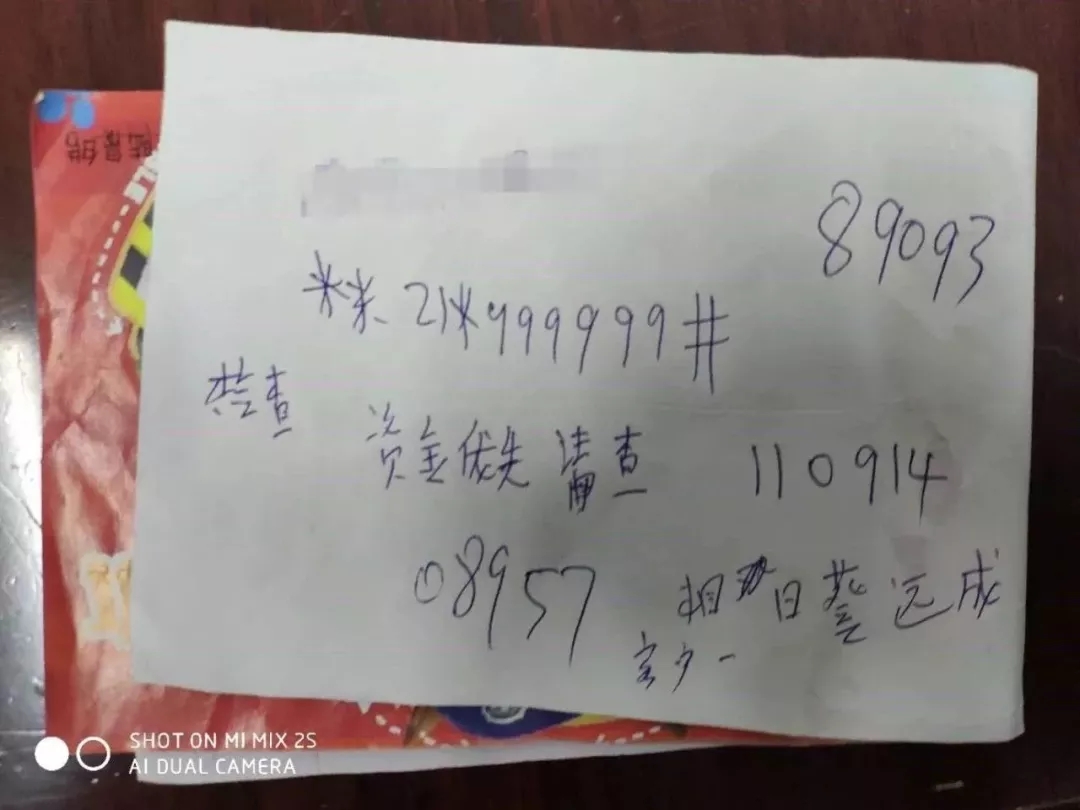 89093
**21*999999#
警查
资金优先清查 110914
08957 相 日警 远成
SHOT ON MI MIX 2S
AI DUAL CAMERA